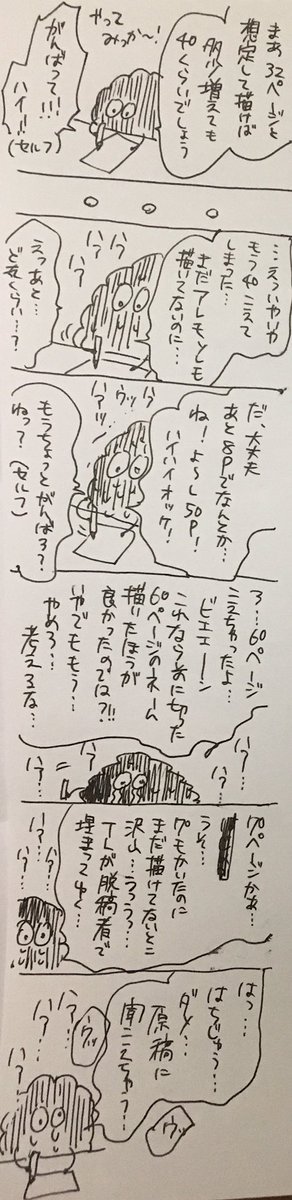 まあ32ページと
想定して描けば
多少増えても
40くらいでしょう
やって
みっか〜!
がんばって!!!
ハイ…!
(セルフ)
…えっいやいや
もう40こえて
しまった…
まだアレもコレも
描いてないのに…
ハァ
ハァ
えっあと…
どれくらい…?
だ、大丈夫
あと8Pでなんとか…
ね!よ〜し50P!
ハイハイオッケ!
ウッ
ハァ
ハァッ
もうちょっとがんばろ?
ねっ?(セルフ)
ろ…60ページ
こえちゃったよ…
ビエェーン
これなら前に切った
60ページのネーム
描いたほうが
良かったのでは?!!
いやでももう…
やめろ…
考えるな…
ハァ…
ハァ…
ハァ…
ハァ…
70ページかぁ…
うそ…
70もかいたのに
まだ描けてないとこ
沢山…うううっ…
TLが脱稿者で
埋まってゆく…
ハァ…
ハァ…
ハァ…
はっ…
はちじゅう…
ダメ…
原稿に
聞こえちゃう…
ウッ
ウッ
ハァ…
ハァ…
ハァ…